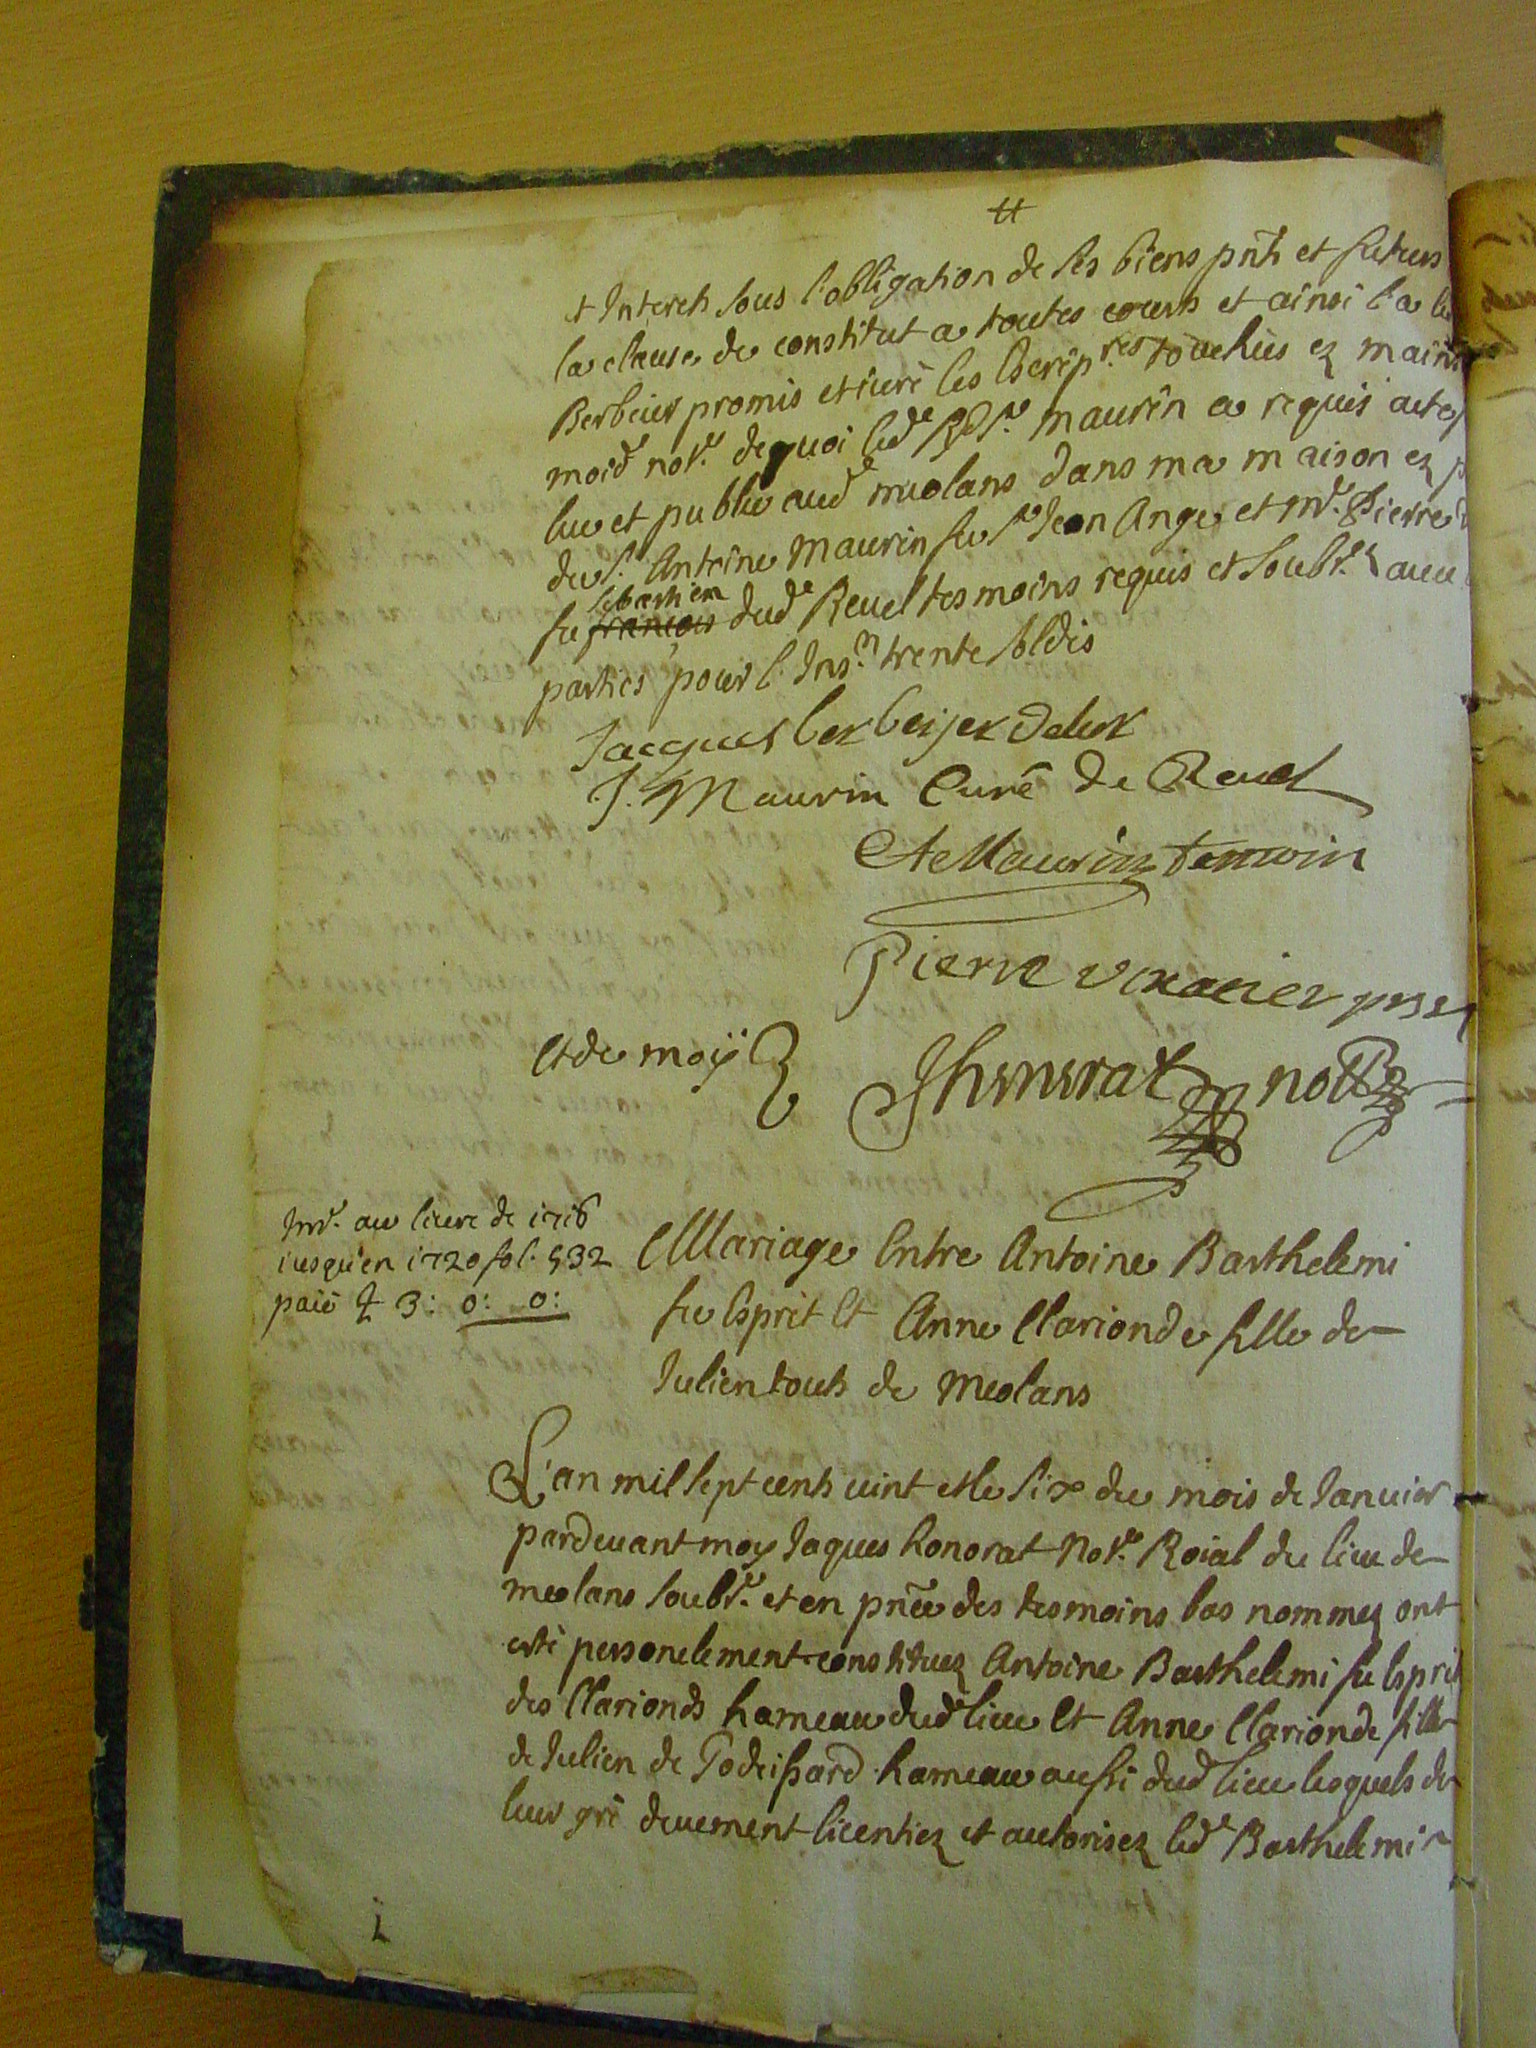 + Interets sous l'obligation de ses biens pnts et futurs
la clause de constitut a toutes cours et ainsi l'a
Berbeier promis et iuré les escripres touchees ez mains
moid notre de quoi led maurin a requis acte
leu et publié aud meolans dans ma maison ez
du sr Antoine Maurin feu sr Jean Ange et mr Pierre
sebastien
feu françois dud Revel tesmoins requis et soubsr
parties pour l'Insn trente soldis
Jacques berbeijer
J. Maurin Curé de Revel
A Maurin temoin
Pierre prsen
Et de moÿ
Jhonorat nore
Insr. au livre de 1716
iusqu'en 1720 fol. 532
paié ₶ 3: 0: 0:
Mariage Entre Antoine Barthelemi
feu Esprit Et Anne Clarionde fille de
Julien touts de Meolans
L'an mil sept cents vint et le six du mois de Januier
pardeuant moy Jaques honorat Notre Roial du lieu de
meolans soubsre et en pnce des tesmoins bas nommez ont
esté personelement constituez Antoine Barthelemi feu Esprit
des Clarionds hameau dud lieu Et Anne Clarionde fille
de Julien de Godeissard hameau aussi dud lieu lesquels de
leur gré deuement licentiez et autorisez led Barthelemi